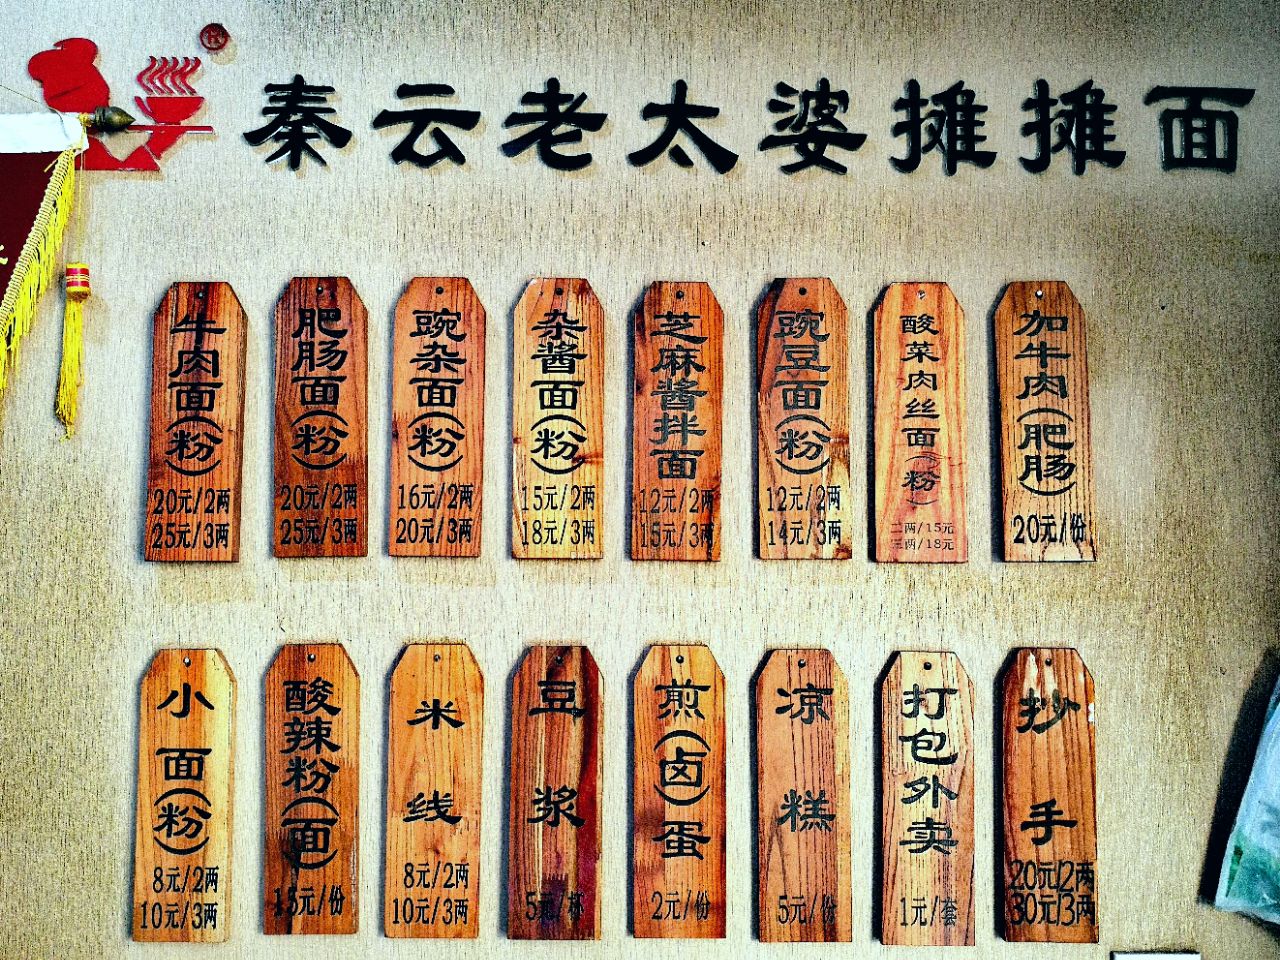 秦云老太婆摊摊面
牛肉面(粉)
20元/2两
25元/3两
肥肠面(粉)
20元/2两
25元/3两
豌杂面(粉)
16元/2两
20元/3两
杂酱面(粉)
15元/2两
18元/3两
芝麻酱拌面
12元/2两
15元/3两
豌豆面(粉)
12元/2两
14元/3两
酸菜肉丝面(粉)
二两/15元
三两/18元
加牛肉(肥肠)
20元/份
小面(粉)
8元/2两
10元/3两
酸辣粉(面)
15元/份
米线
8元/2两
10元/3两
豆浆
5元/杯
煎(卤)蛋
2元/份
凉糕
5元/份
打包外卖
1元/套
抄手
20元/2两
30元/3两